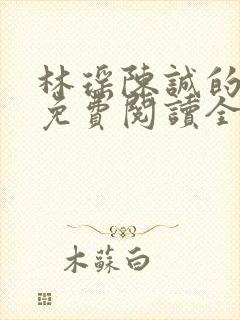 林瑤陳誠的
免費閱讀全
木蘇白